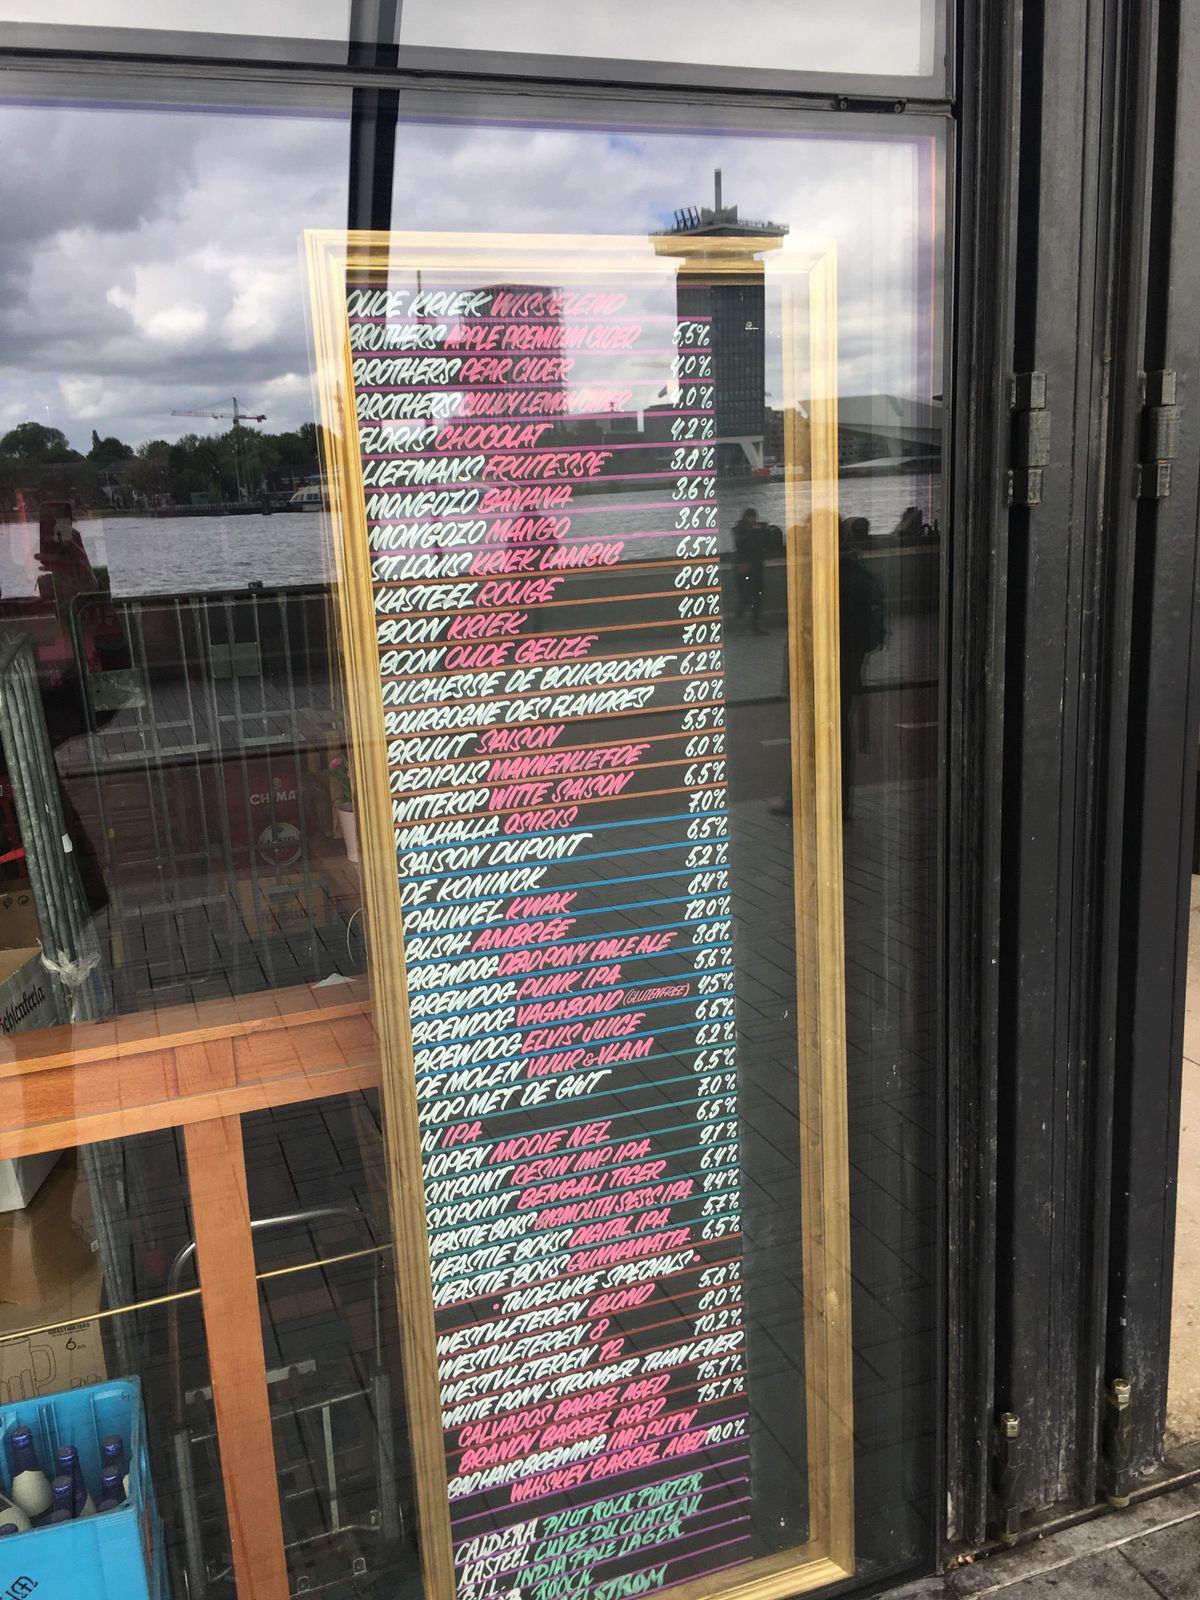 OUDE KRIEK WISSELEND
BROTHERS APPLE PREMIUM CIDER 5,5%
BROTHERS PEAR CIDER 4,0%
BROTHERS CLOUDY LEMON 4,0%
FLORIS CHOCOLAT 4,2%
LIEFMANS FRUITESSE 3.8%
MONGOZO BANANA 3.6%
MONGOZO MANGO 3,6%
ST. LOUIS KRIEK LAMBIC 6,5%
KASTEEL ROUGE 8,0%
BOON KRIEK 4,0%
BOON OUDE GEUZE 7,0%
DUCHESSE DE BOURGOGNE 6,2%
BOURGOGNE DES FLANDRES 5,0%
BRUUT SAISON 5,5%
OEDIPUS MANNENLIEFDE 6,0%
WITTEKOP WITTE SAISON 6,5%
WALHALLA OSIRIS 7,0%
SAISON DUPONT 6,5%
DE KONINCK 5,2%
PAUWEL KWAK 8,4%
BUSH AMBRÉE 12,0%
BREWDOG DEAD PONY PALE ALE 3,8%
BREWDOG PUNK IPA 5,6%
BREWDOG VAGABOND (GLUTENFREE) 4,5%
BREWDOG ELVIS JUICE 6,5%
DE MOLEN VUUR & VLAM 6,2%
HOP MET DE GIJT 6,5%
IJ IPA 7,0%
JOPEN MOOIE NEL 6,5%
SIXPOINT RESIN IMP. IPA 9,1%
SIXPOINT BENGALI TIGER 6,4%
YEASTIE BOYS BIGMOUTH SESS. IPA 4,4%
YEASTIE BOYS DIGITAL IPA 5,7%
YEASTIE BOYS GUNNAMATTA 6,5%
• TIJDELIJKE SPECIALS •
WESTVLETEREN BLOND 5,8%
WESTVLETEREN 8 8,0%
WESTVLETEREN 12 10,2%
WHITE PONY STRONGER THAN EVER
CALVADOS BARREL AGED 15,1%
BRANDY BARREL AGED 15,1%
BAD HAIR BREWING IMP PUTIN
WHISKEY BARREL AGED 10,0%
CALDERA PILOT ROCK PORTER
KASTEEL CUVEE DU CHATEAU
INDIA PALE LAGER
ROOK
Schlenkerla
6